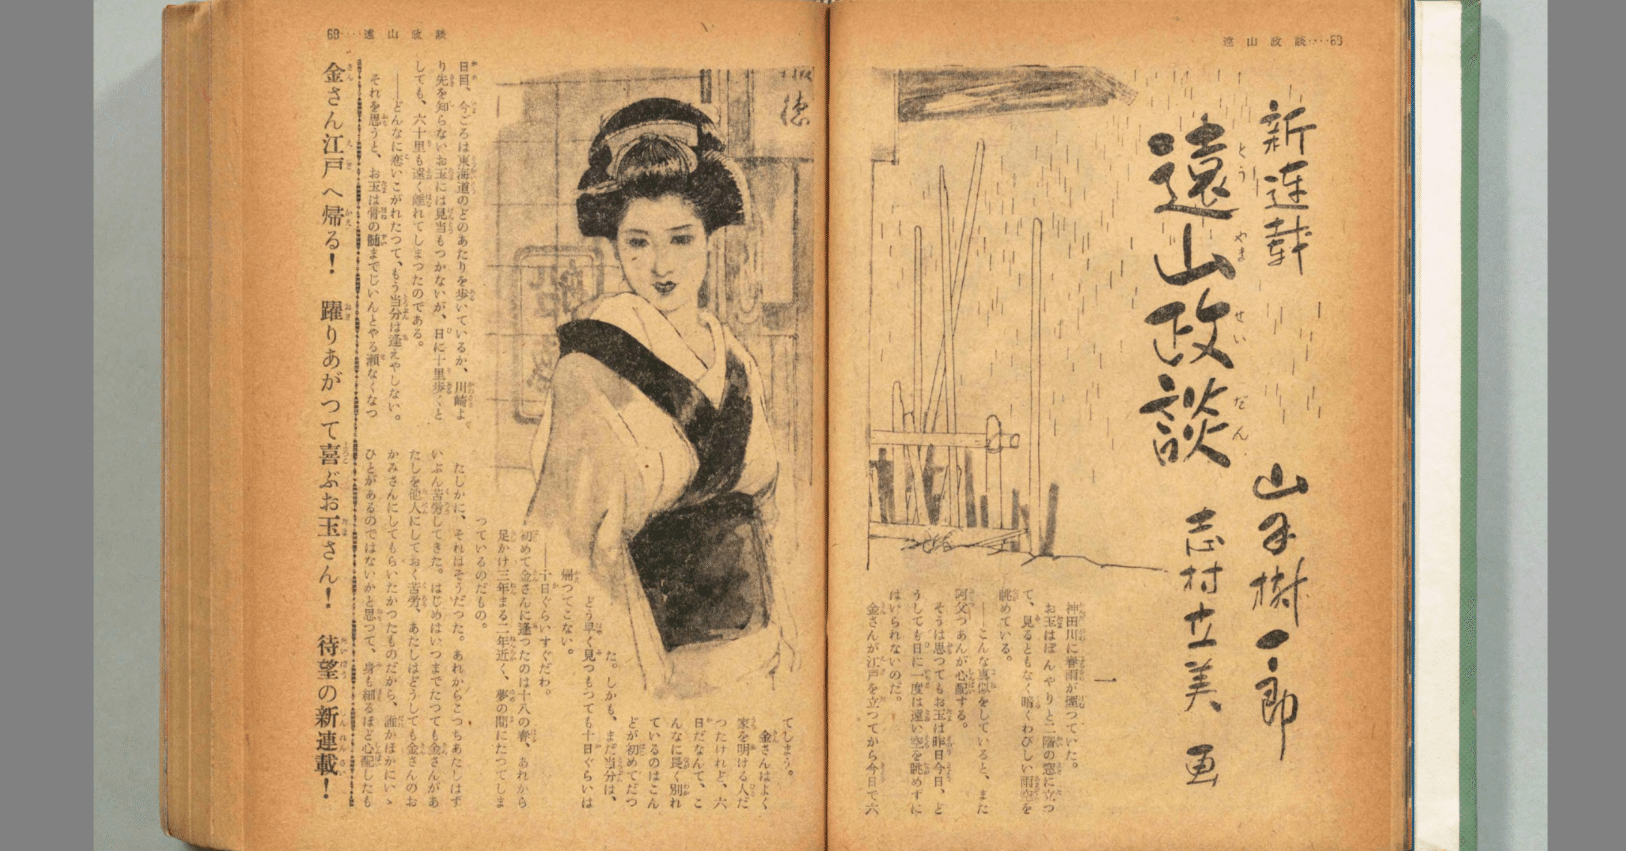 遠山政談‥‥68
新連載
遠山政談
とうやませいだん
山手樹一郎
志村立美 画
一
神田川に春雨が煙つていた。
お玉はぼんやりと二階の窓に立つ
て、見るともなく暗くわびしい雨空を
眺めている。
――こんな真似をしていると、また
阿父つあんが心配する。
そうは思つてもお玉は昨日今日、ど
うしても日に一度は遠い空を眺めずに
はいられないのだ。
金さんが江戸を立つてから今日で六
日目、今ごろは東海道のどのあたりを歩いているか、川崎よ
り先を知らないお玉には見当もつかないが、日に十里歩くと
しても、六十里も遠く離れてしまつたのである。
――どんなに恋いこがれたつて、もう当分は逢えやしない。
それを思うと、お玉は骨の髄までじいんとやる瀬なくなつ
てしまう。
金さんはよく
家を明ける人だ
つたけれど、六
日だなんて、こ
んなに長く別れ
ているのはこん
どが初めてだつ
た。しかも、まだ当分は、
どう早く見つもつても十日ぐらいは
帰つてこない。
――十日ぐらいすぐだわ。
初めて金さんに逢つたのは十八の春、あれから
足かけ三年まる二年近く、夢の間にたつてしま
つているのだもの。
たしかに、それはそうだつた。あれからこつちあたしはず
いぶん苦労してきた。はじめはいつまでたつても金さんがあ
たしを他人にしておく苦労、あたしはどうしても金さんのお
かみさんにしてもらいたかつたものだから、誰かほかにいゝ
ひとがあるのではないかと思つて、身も細るほど心配したも
金さん江戸へ帰る! 躍りあがつて喜ぶお玉さん! 待望の新連載!